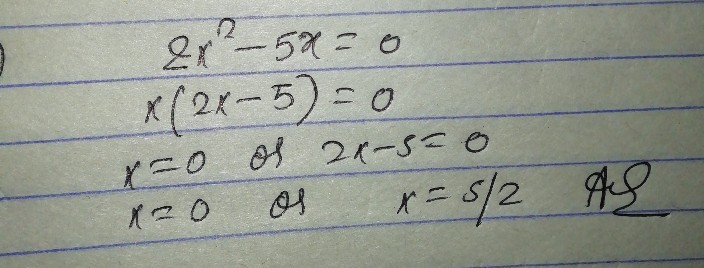 2x² - 5x = 0
x(2x - 5) = 0
x = 0 or 2x - 5 = 0
x = 0 or x = 5/2 AS